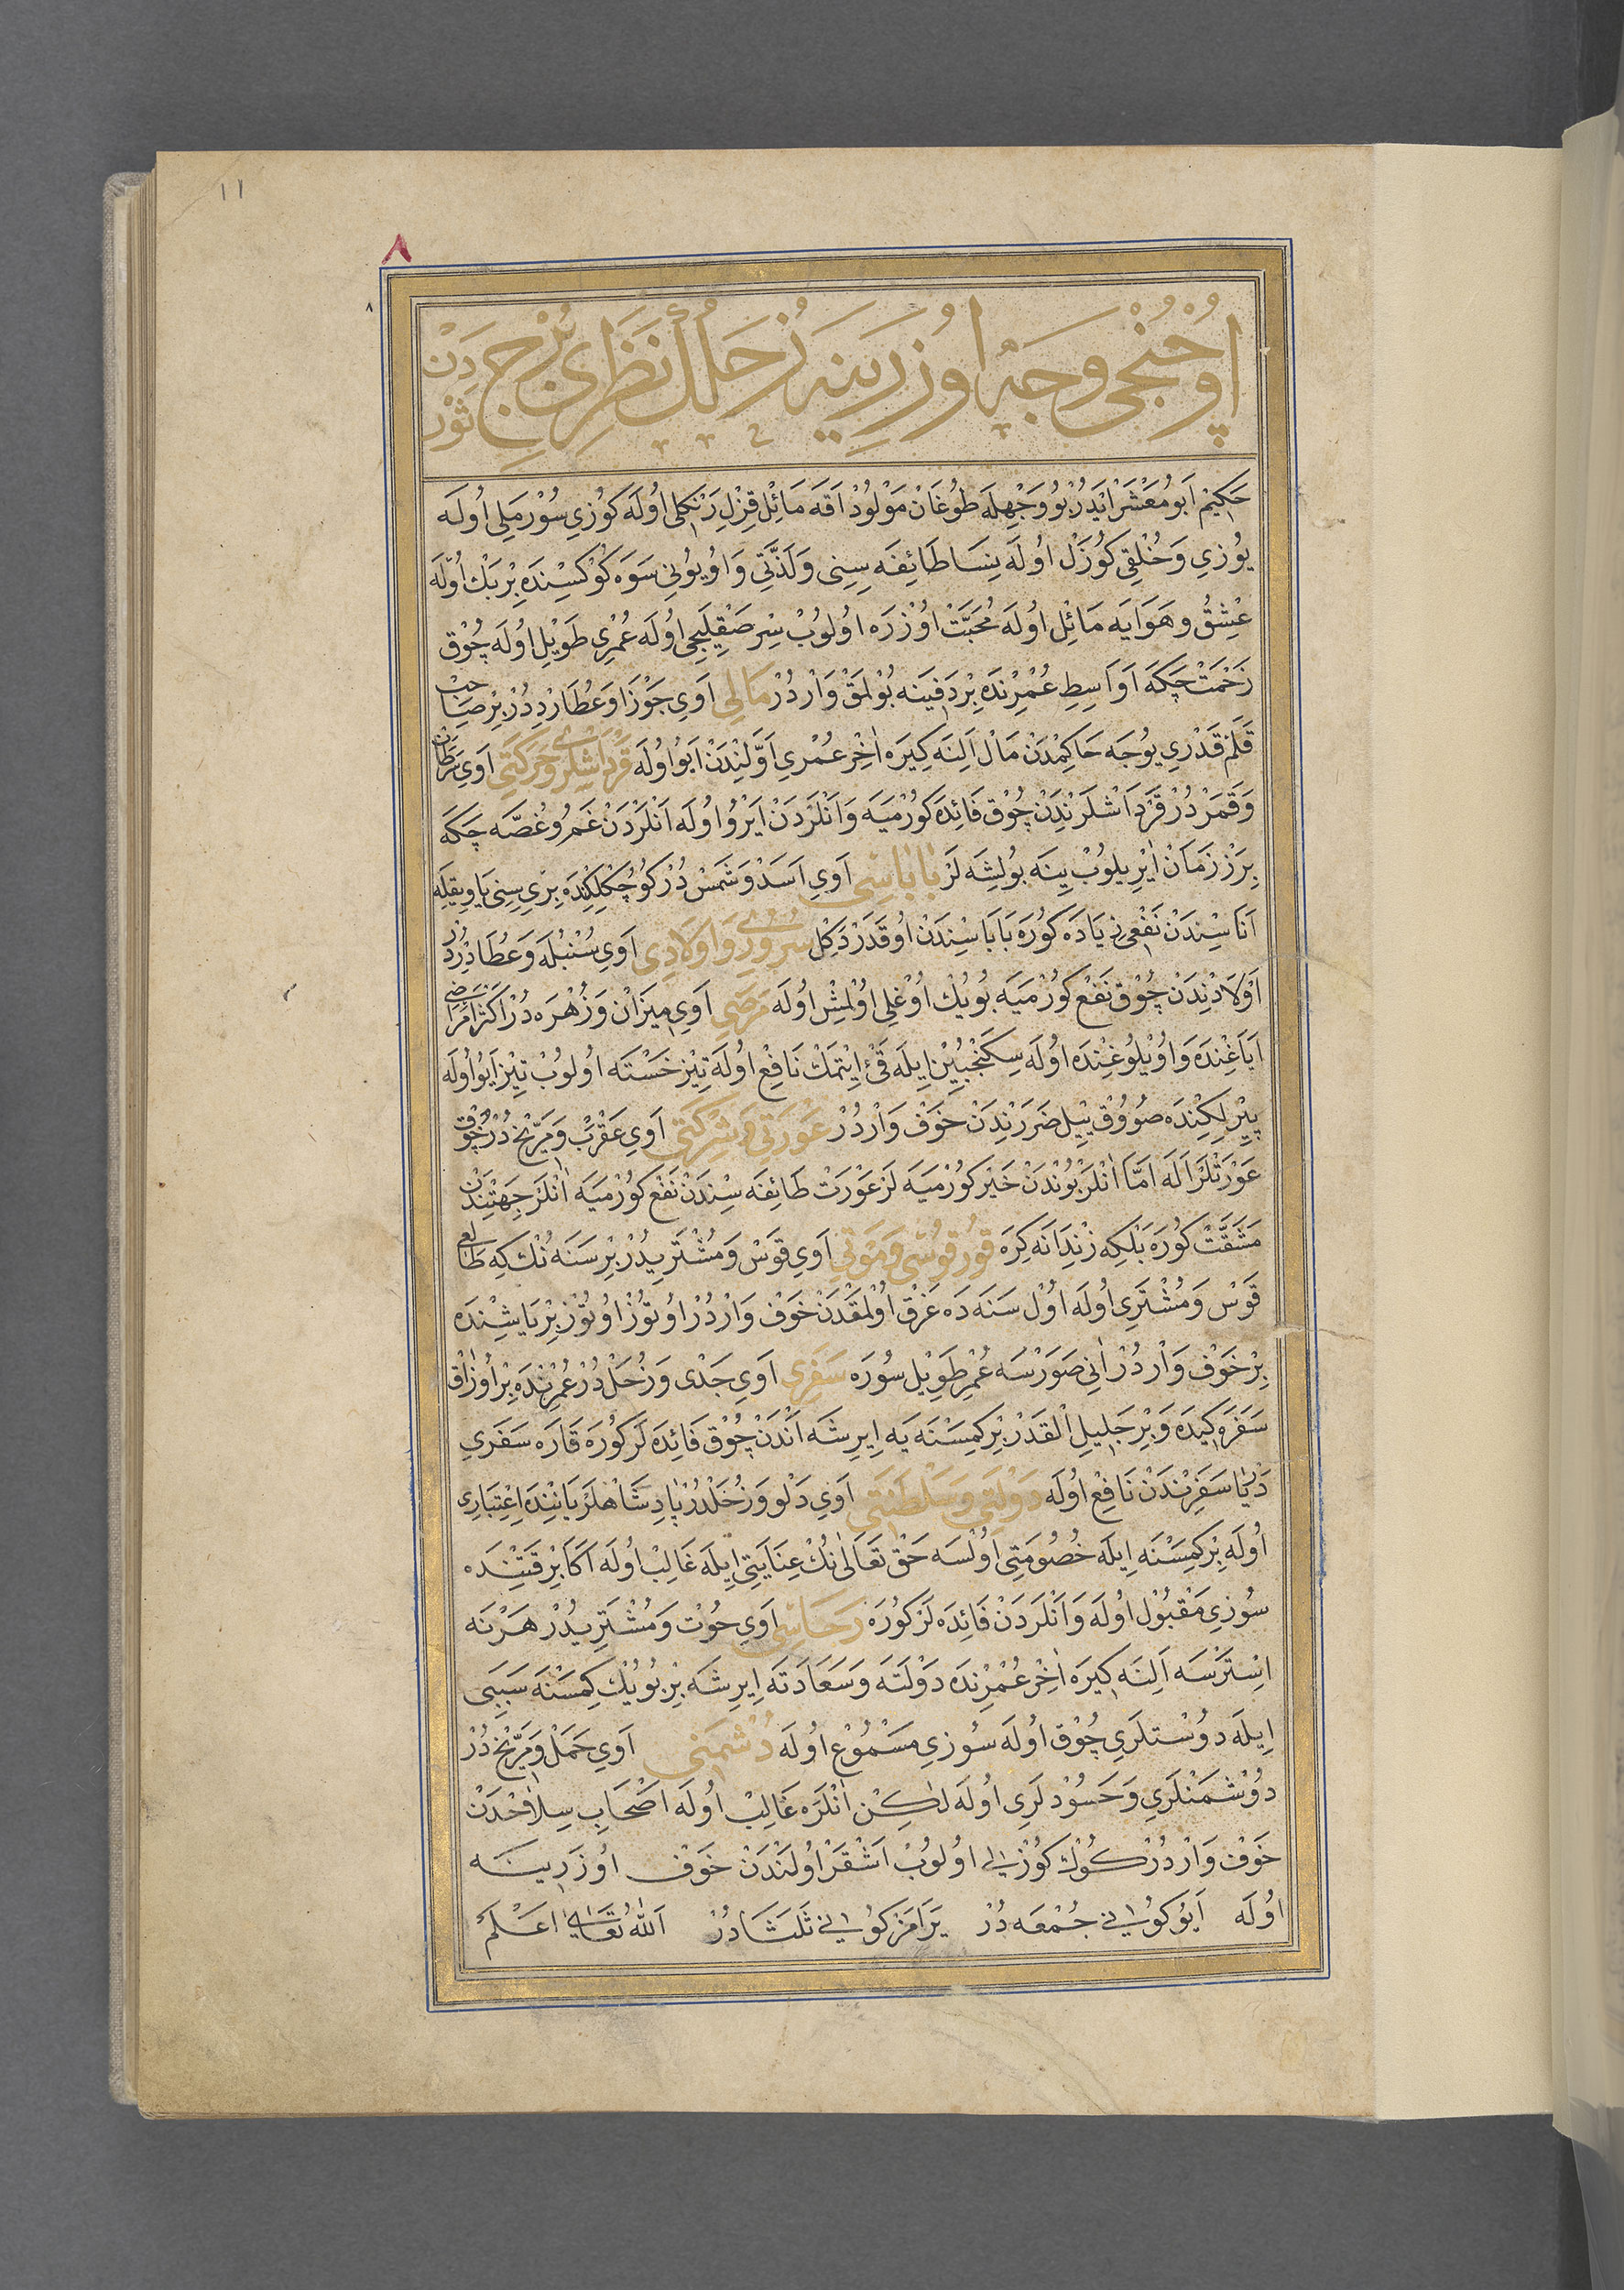 ١١
٨
٨
اُوچُنْجِى وَجْه اُوزَرِينَه زُحَلُكْ نَظَرِى بُرْجِ
دِنْ
ثَوْر
حَكِيمْ اَبُو مُعَشَّرْ اَيْدُرْ بُو وَجْهِلَه طُوغَانْ مَوْلُودْ اَقَه مَائِلْ قِزِلْ رَنْكلِى اُولَه كُوزِى سُورْمَلِى اُولَه
يُوزِى وَخُلْقِى كُوزَلْ اُولَه نِسَا طَائِفَه سِنِى وَلَذَّتِى وَاُويُونِى سَوَه كُوكْسِنْدَه بِرْ بَكْ اُولَه
عِشْقُ و هَوَايَه مَائِلْ اُولَه مُحَبَّتْ اُوزْرَه اُولُوبْ سِرْ صَقْلَيِجِى اُولَه عُمْرِى طَوِيلْ اُولَه چُوقْ
زَحْمَتْ چَكَه اَوَاسِطِ عُمْرِنْدَه بِرْ دَفِينَه بُولْمَقْ وَارْدُرْ مَالِى اَوِى جَوْزَا وَعُطَارِدْدُرْ بِرْ صَاحِبْ
قَلَمْ قَدْرِى يُوجَه حَاكِمْدَنْ مَالْ اَلِنَه كِيرَه اٰخِرْ عُمْرِى اَوَّلِنْدَنْ اَيُو اُولَه قَرْدَاشْلَرِى وَحَرَكَتِى اَوِى سَرَطَانْ
وَقَمَرْدُرْ قَرْدَاشْلَرِنْدَنْ چُوقْ فَائِدَه كُورْمَيَه وَاَنْلَرْدَنْ اَيْرُو اُولَه اَنْلَرْدَنْ غَمْ وُ غُصَّه چَكَه
بِرَزْ زَمَانْ اَيْرِيلُوبْ يِنَه بُولِشَه لَرْ بَابَاسِى اَوِى اَسَدْ وَشَمْسْ دُرْ كُوچُكْلِكِنْدَه بِرِيسِنِى يَاوِيقِلَه
اَنَاسِنْدَنْ نَفْعِى زِيَادَه كُورَه بَابَاسِنْدَنْ اُوقَدَرْ دَكِلْ سُرُورِى وَاَوْلَادِى اَوِى سُنْبُلَه وَعُطَارِدْدُرْ
اَوْلَادِنْدَنْ چُوقْ نَفْعْ كُورْمَيَه بُويُكْ اُوغْلِى اُولْمِشْ اُولَه مَرَضِى اَوِى مِيزَانْ وَزُهْرَه دُرْ اَكْثَرْ اَمْرَاضِى
اَيَاغِنْدَه وَاُويْلُوغِنْدَه اُولَه سِكَنْجُبِينْ اِيلَه قَىْ اِيتْمَكْ نَافِعْ اُولَه تِيزْ خَسْتَه اُولُوبْ تِيزْ اَيُو اُولَه
پِيرْلِكِنْدَه صُوُوقْ يِيلْ ضَرَرِنْدَنْ خَوْفْ وَارْدُرْ عَوْرَتِى وَشِرْكَتِى اَوِى عَقْرَبْ وَمَرِّيخْ دُرْ چُوقْ
عَوْرَتْلَرْ اَلَه اَمَّا اَنْلَرْ بُونْدَنْ خَيْرْ كُورْمَيَه لَرْ عَوْرَتْ طَائِفَه سِنْدَنْ نَفْعْ كُورْمَيَه اَنْلَرْ جِهَتِنْدَنْ
مَشَقَّتْ كُورَه بَلْكِه زِنْدَانَه كِرَه قُورْقُوسِى وَمَوْتِى اَوِى قَوْسْ وَمُشْتَرِيدُرْ بِرْ سَنَه نُكْ كِه طَالِعِى
قَوْسْ وَمُشْتَرِى اُولَه اُولْ سَنَه دَه غَرْقْ اُولْمَقْدَنْ خَوْفْ وَارْدُرْ اُوتُوزْ اُوتُوزْ بِرْ يَاشِنْدَه
بِرْ خَوْفْ وَارْدُرْ اَنِى صَوَرْسَه عُمْرِ طَوِيلْ سُورَه سَفَرِى اَوِى جَدْى وَزُحَلْدُرْ عُمْرِنْدَه بِرْ اُوزَاقْ
سَفَرَه كِيدَه وَبِرْ جَلِيلُ الْقَدْرْ بِرْ كِمْسَنَه يَه اِيرِشَه اَنْدَنْ چُوقْ فَائِدَه لَرْ كُورَه قَارَه سَفَرِى
دَرْيَا سَفَرِنْدَنْ نَافِعْ اُولَه دَوْلَتِى وَسَلْطَنَتِى اَوِى دَلْو وَزُحَلْدُرْ پَادِشَاهْلَرْ يَانِنْدَه اِعْتِبَارِى
اُولَه بِرْ كِمْسَنَه اِيلَه خُصُومَتِى اُولْسَه حَقْ تَعَالٰى نُكْ عِنَايَتِى اِيلَه غَالِبْ اُولَه اَكَابِرْ قَتِنْدَه
سُوزِى مَقْبُولْ اُولَه وَاَنْلَرْدَنْ فَائِدَه لَرْ كُورَه رَجَاسِى اَوِى حُوتْ وَمُشْتَرِيدُرْ هَرْ نَه
اِسْتَرْسَه اَلِنَه كِيرَه اٰخِرْ عُمْرِنْدَه دَوْلَتَه وَسَعَادَتَه اِيرِشَه بِرْ بُويُكْ كِمْسَنَه سَبَبِى
اِيلَه دُوسْتلَرِى چُوقْ اُولَه سُوزِى مَسْمُوعْ اُولَه دُشْمَنِى اَوِى حَمَلْ وَمَرِّيخْ دُرْ
دُوشْمَنْلَرِى وَحَسُودْلَرِى اُولَه لٰكِنْ اَنْلَرَه غَالِبْ اُولَه اَصْحَابِ سِلَاحْدَنْ
خَوْفْ وَارْدُرْ كُوكْ كُوزْلِى اُولُوبْ اَشْقَرْ اُولَنْدَنْ خَوْفْ اُوزَرِينَه
اُولَه اَيُو كُونِى جُمْعَه دُرْ يَرَامَزْ كُونِى ثَلَثَا دُرْ اَللّٰهُ تَعَالٰى اَعْلَمْ